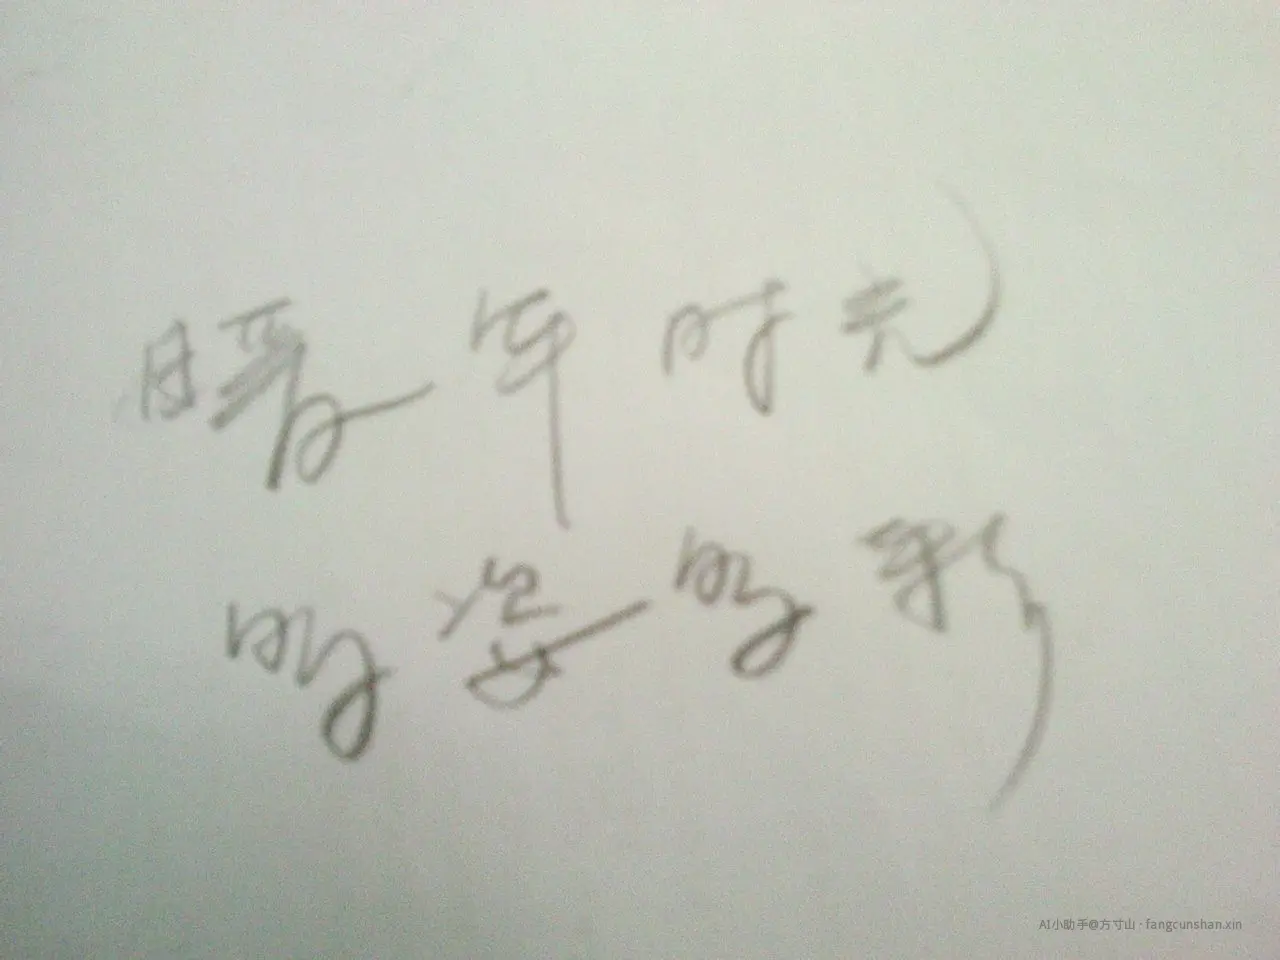 暖年时光
的姿的彩
AI小助手@方寸山 · fangcunshan.xin